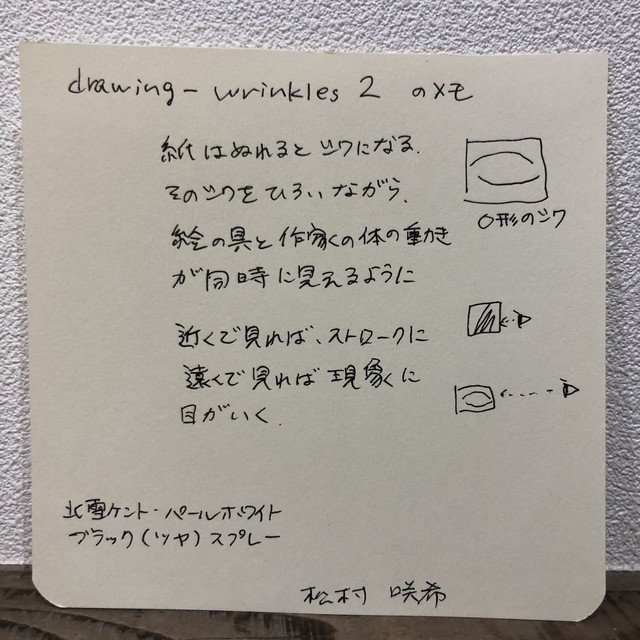 drawing - wrinkles 2 のメモ
紙はぬれるとシワになる.
そのシワをひろいながら、
絵の具と作家の体の動き
が同時に見えるように
O形のシワ
近くで見れば、ストロークに
遠くで見れば現象に
目がいく.
北雪ケント・パールホワイト
ブラック(ツヤ)スプレー
松村 咲希